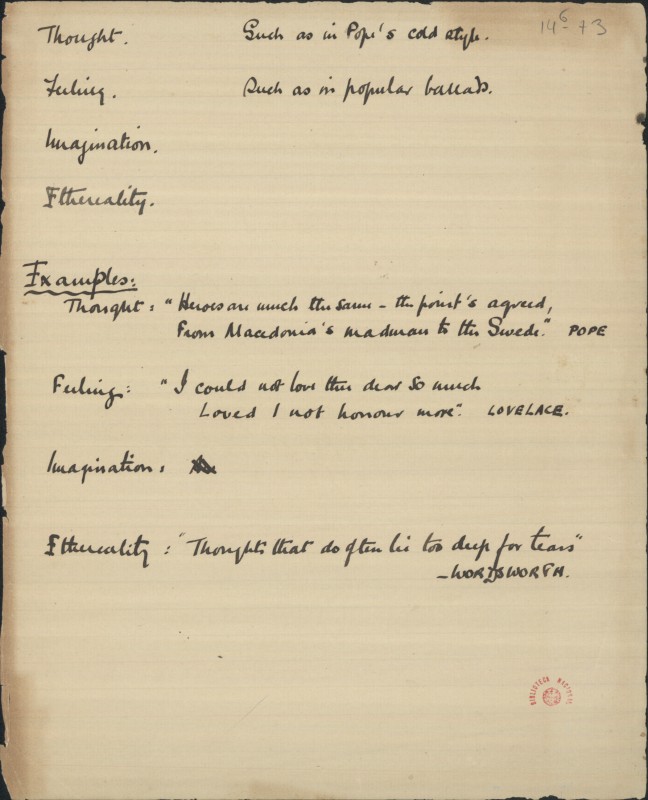 14⁶-73
Thought. Such as in Pope's cold style.
Feeling. Such as in popular ballads.
Imagination.
Ethereality.
Examples:
Thought: "Heroes are much the same - the point's agreed,
From Macedonia's madman to the Swede." POPE
Feeling: "I could not love thee dear so much
Loved I not honour more". LOVELACE.
Imagination:
Ethereality: "Thoughts that do often lie too deep for tears"
- WORDSWORTH.
BIBLIOTECA NACIONAL